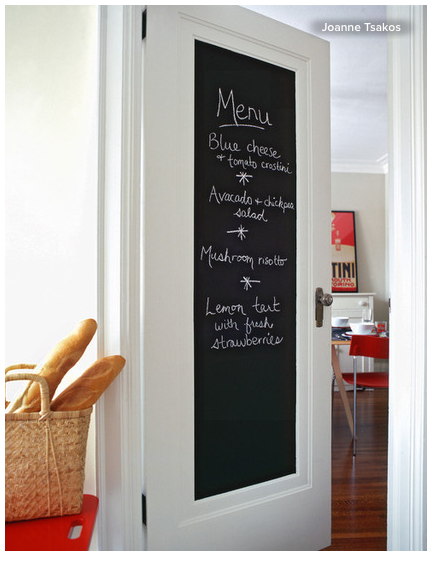 Joanne Tsakos
Menu
Blue cheese
+ tomato crostini
Avacado + chickpea
salad
Mushroom risotto
Lemon tart
with fresh
strawberries
TINI